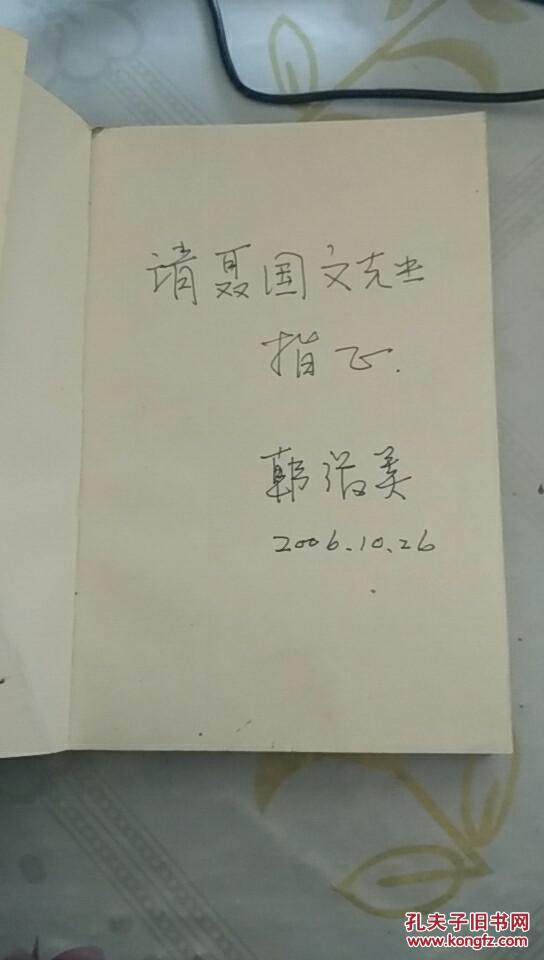 请聂国文先生
指正.
韩美
2006.10.26
孔夫子旧书网
www.kongfz.com